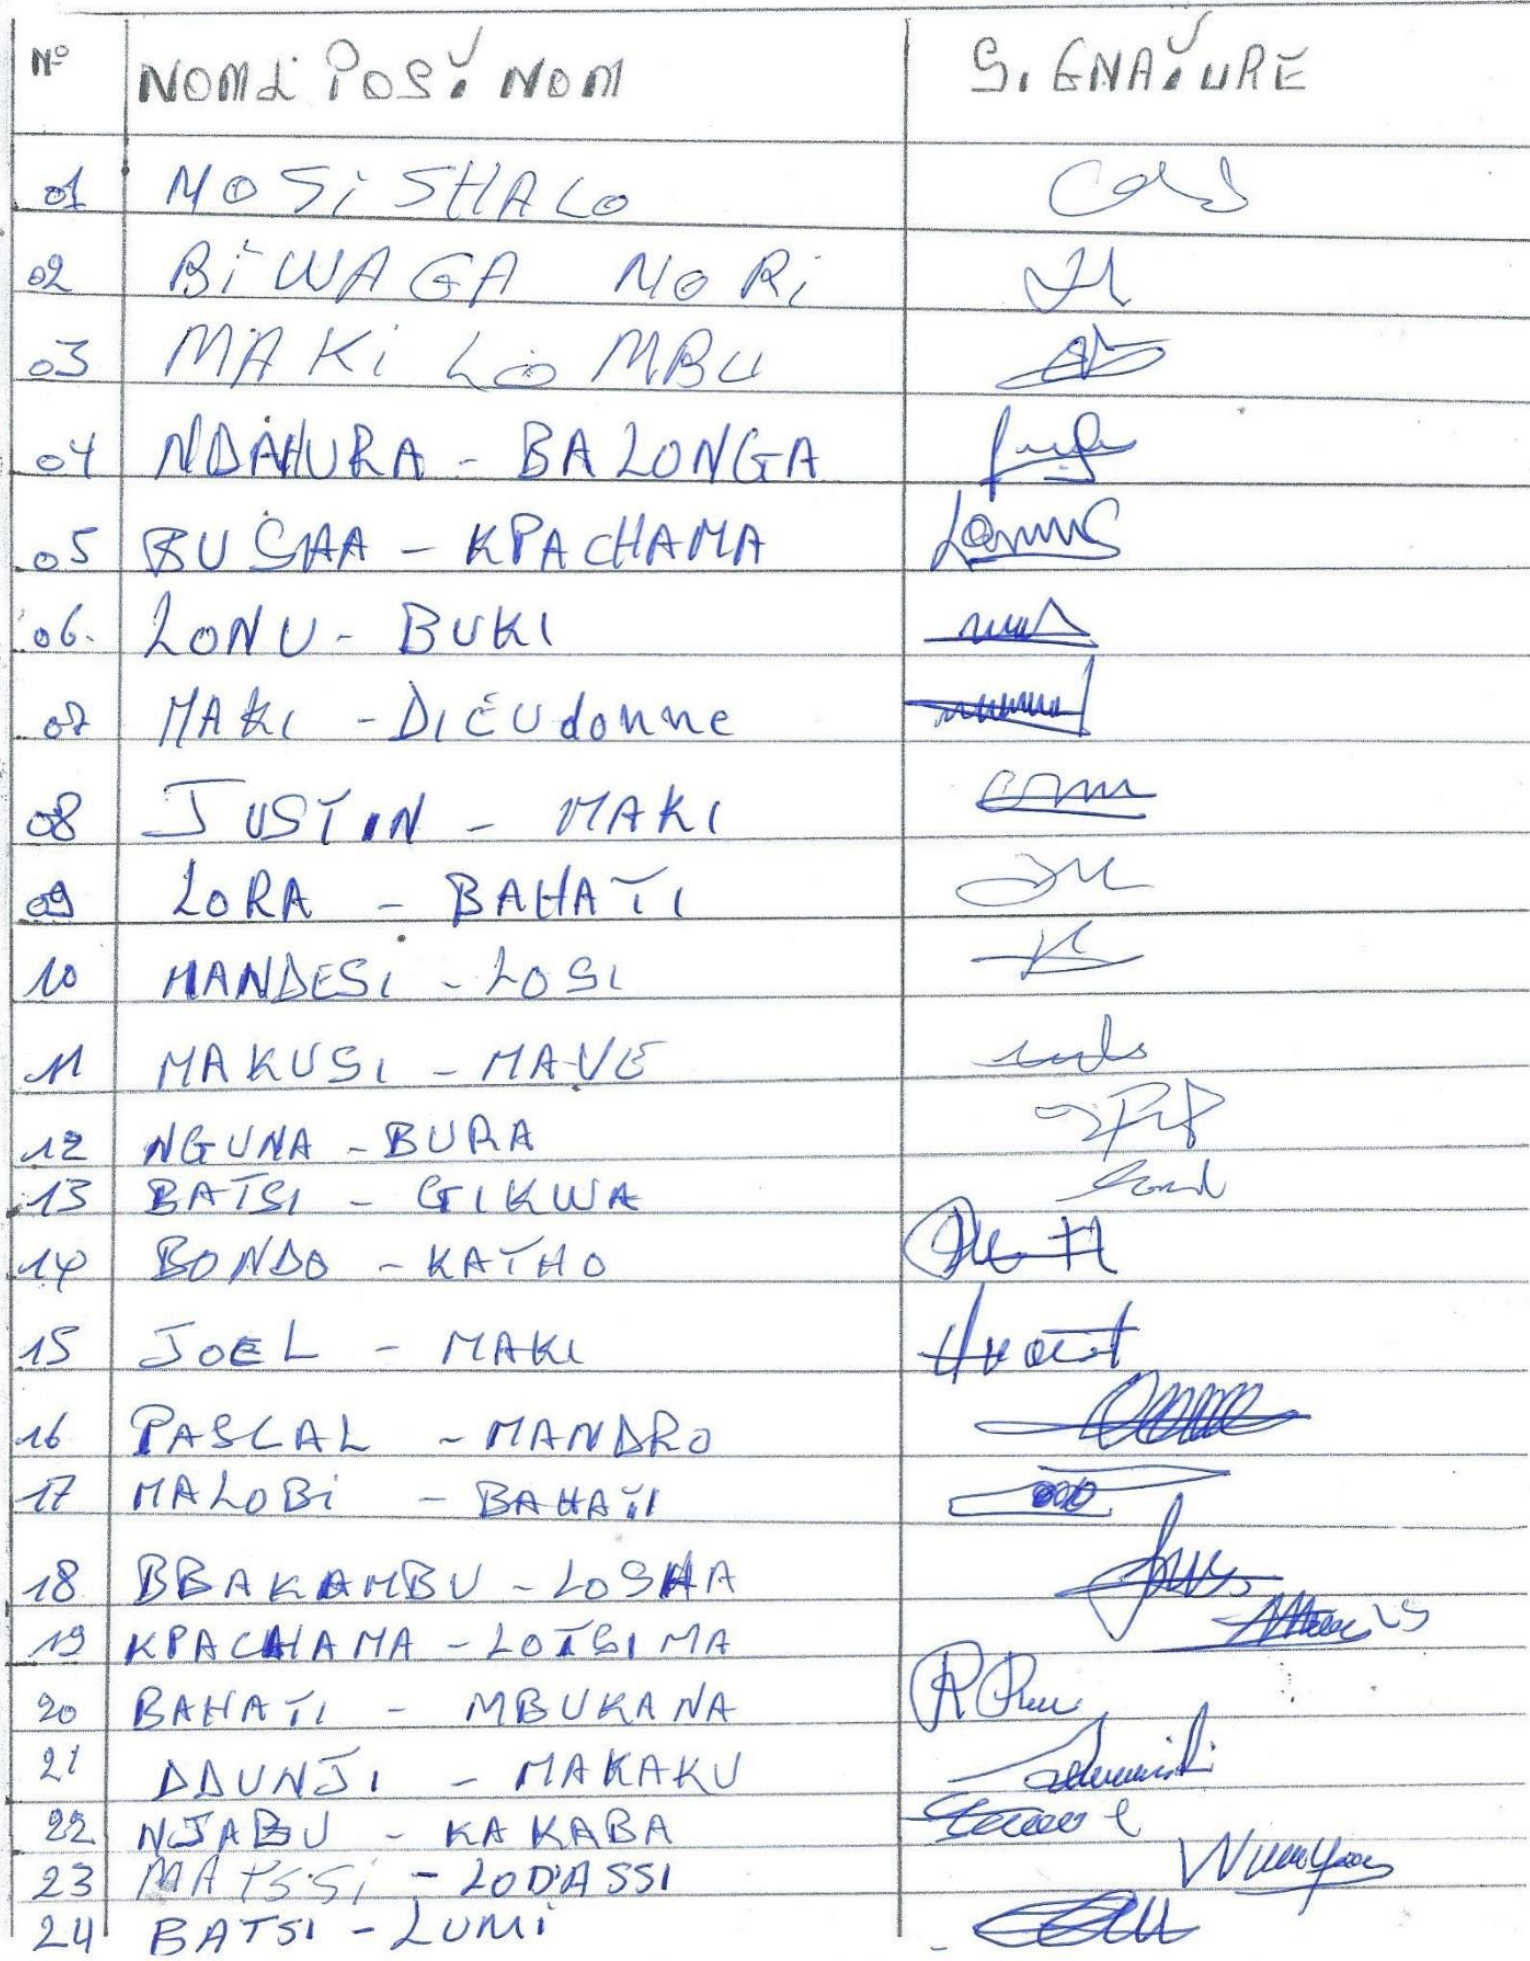 N° NOM & POST NOM SIGNATURE
01 MOSI SHALO
02 BIWAGA NORI
03 MAKI LOMBU
04 NDAHURA - BALONGA
05 BUSHA - KPACHAMA
06. LONU - BUKI
07 MAKI - DIEUdonne
08 JUSTIN - MAKI
09 LORA - BAHATI
10 MANDESI - LOSI
11 MAKUSI - MAVE
12 NGUNA - BURA
13 BATSI - GIKWA
14 BONDO - KATHO
15 JOEL - MAKI
16 PASCAL - MANDRO
17 MALOBI - BAHATI
18 BBAKAMBU - LOSHA
19 KPACHAMA - LOTSIMA
20 BAHATI - MBUKANA
21 DDUNJI - MAKAKU
22 NJABU - KAKABA
23 MATSSI - LODASSI
24 BATSI - LUMI